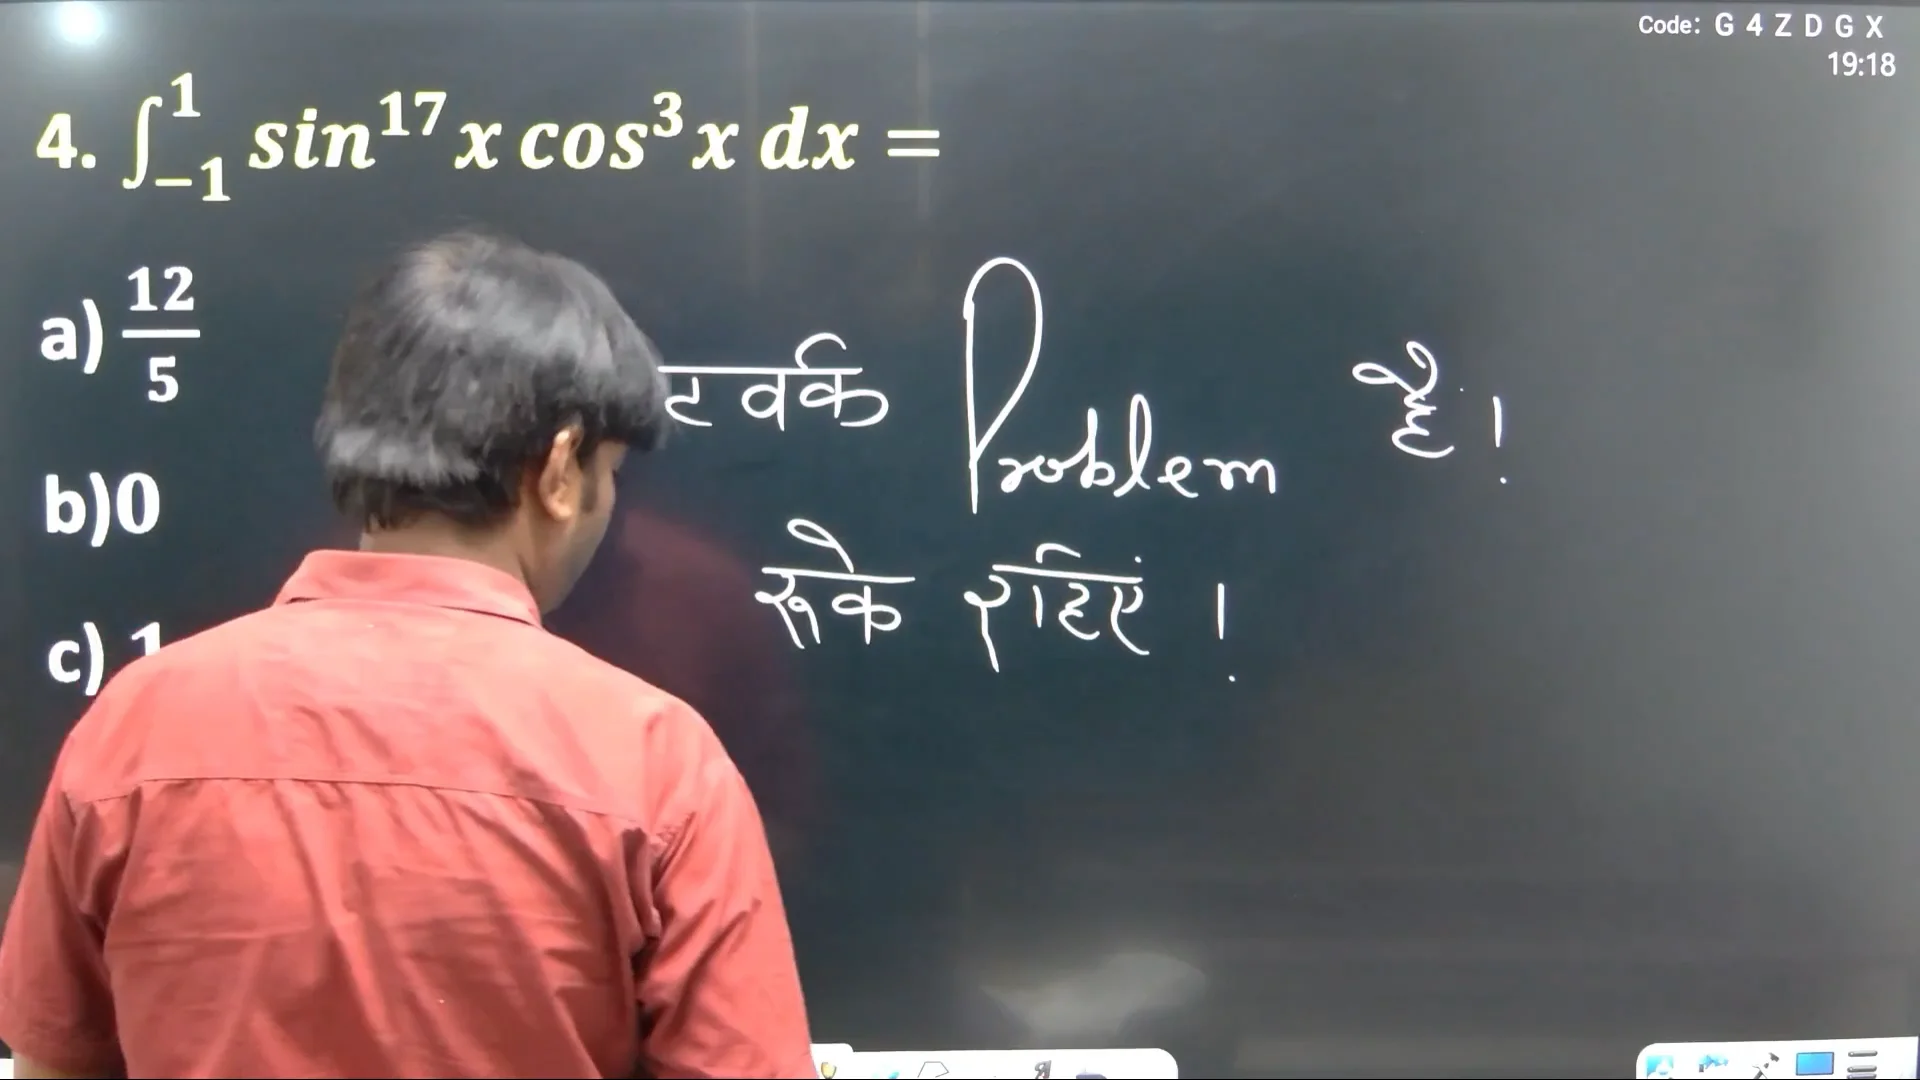 Code: G 4 Z D G X
19:18
4. ∫₋₁¹ sin¹⁷ x cos³ x dx =
a) 12/5
b)0
c) 1
टवर्क Problem है!
रूके रहिएं !